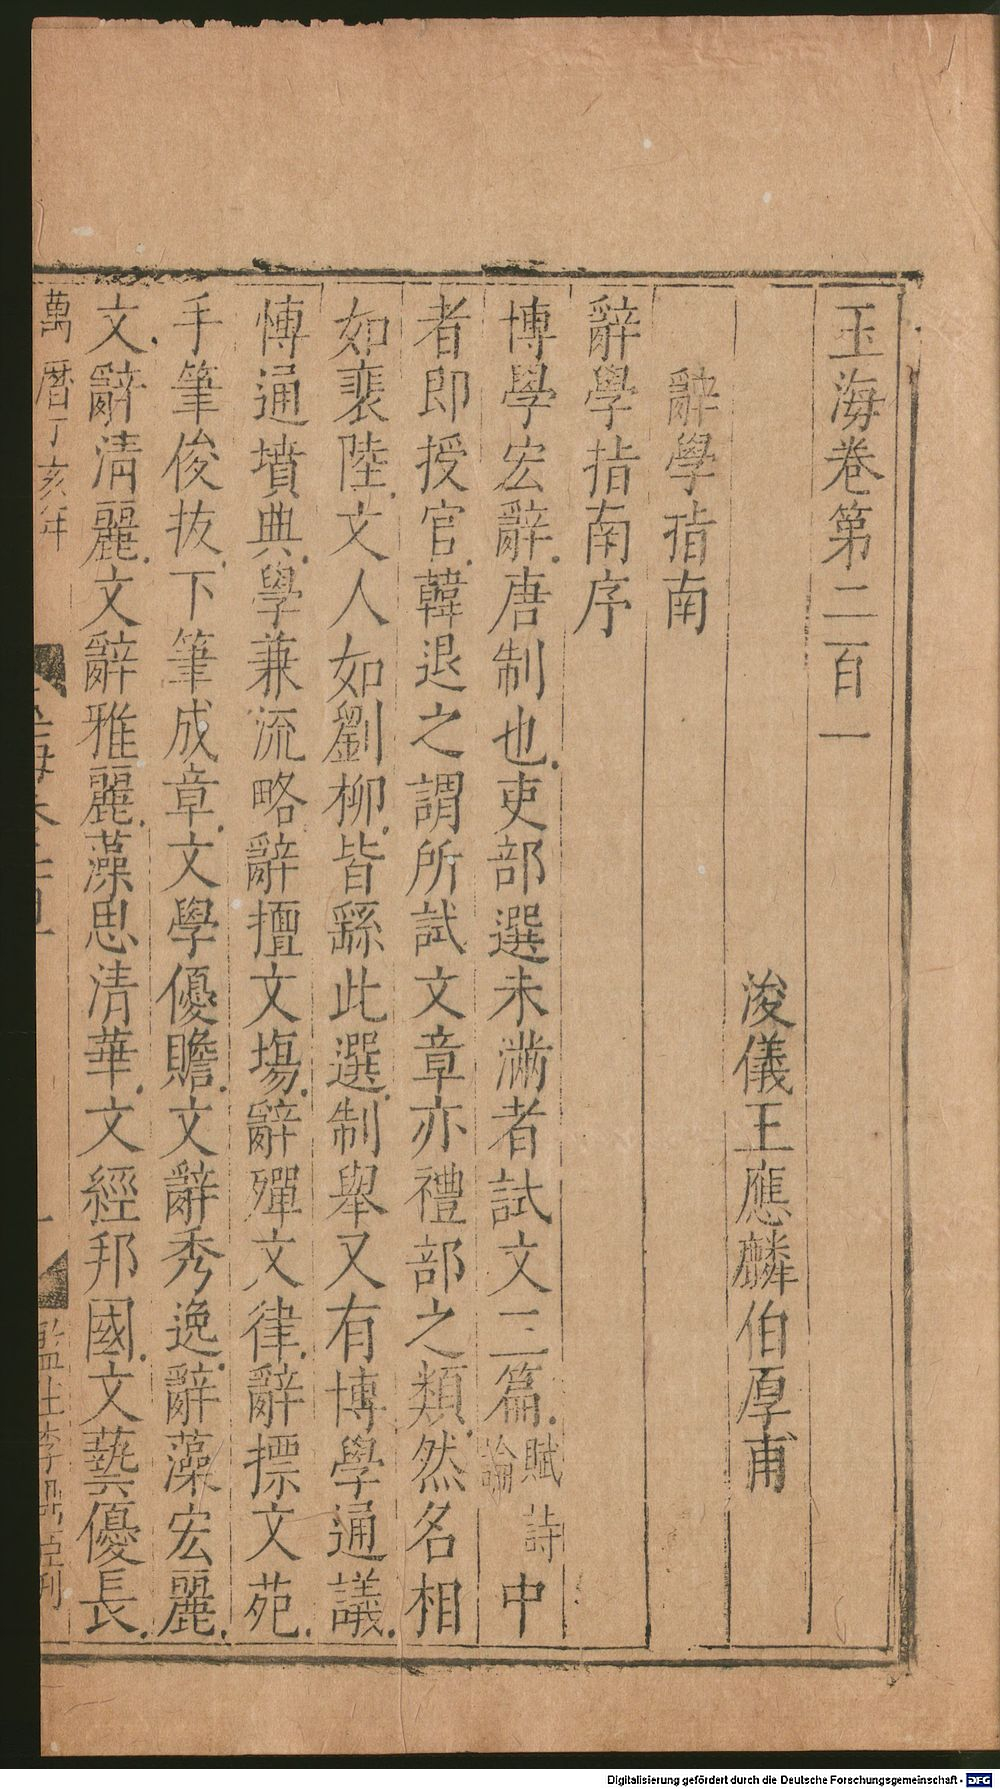 玉海卷第二百一
浚儀王應麟伯厚甫
辭學指南
辭學指南序
博學宏辭唐制也吏部選未滿者試文三篇賦詩論中
者即授官韓退之謂所試文章亦禮部之類然名相
如裴陸文人如劉柳皆繇此選制舉又有博學通議
博通墳典學兼流略辭擅文場辭殫文律辭摽文苑
手筆俊拔下筆成章文學優贍文辭秀逸辭藻宏麗
文辭清麗文辭雅麗藻思清華文經邦國文藝優長
萬曆丁亥年
一
監生李鼎臣刊
Digitalisierung gefördert durch die Deutsche Forschungsgemeinschaft - DFG